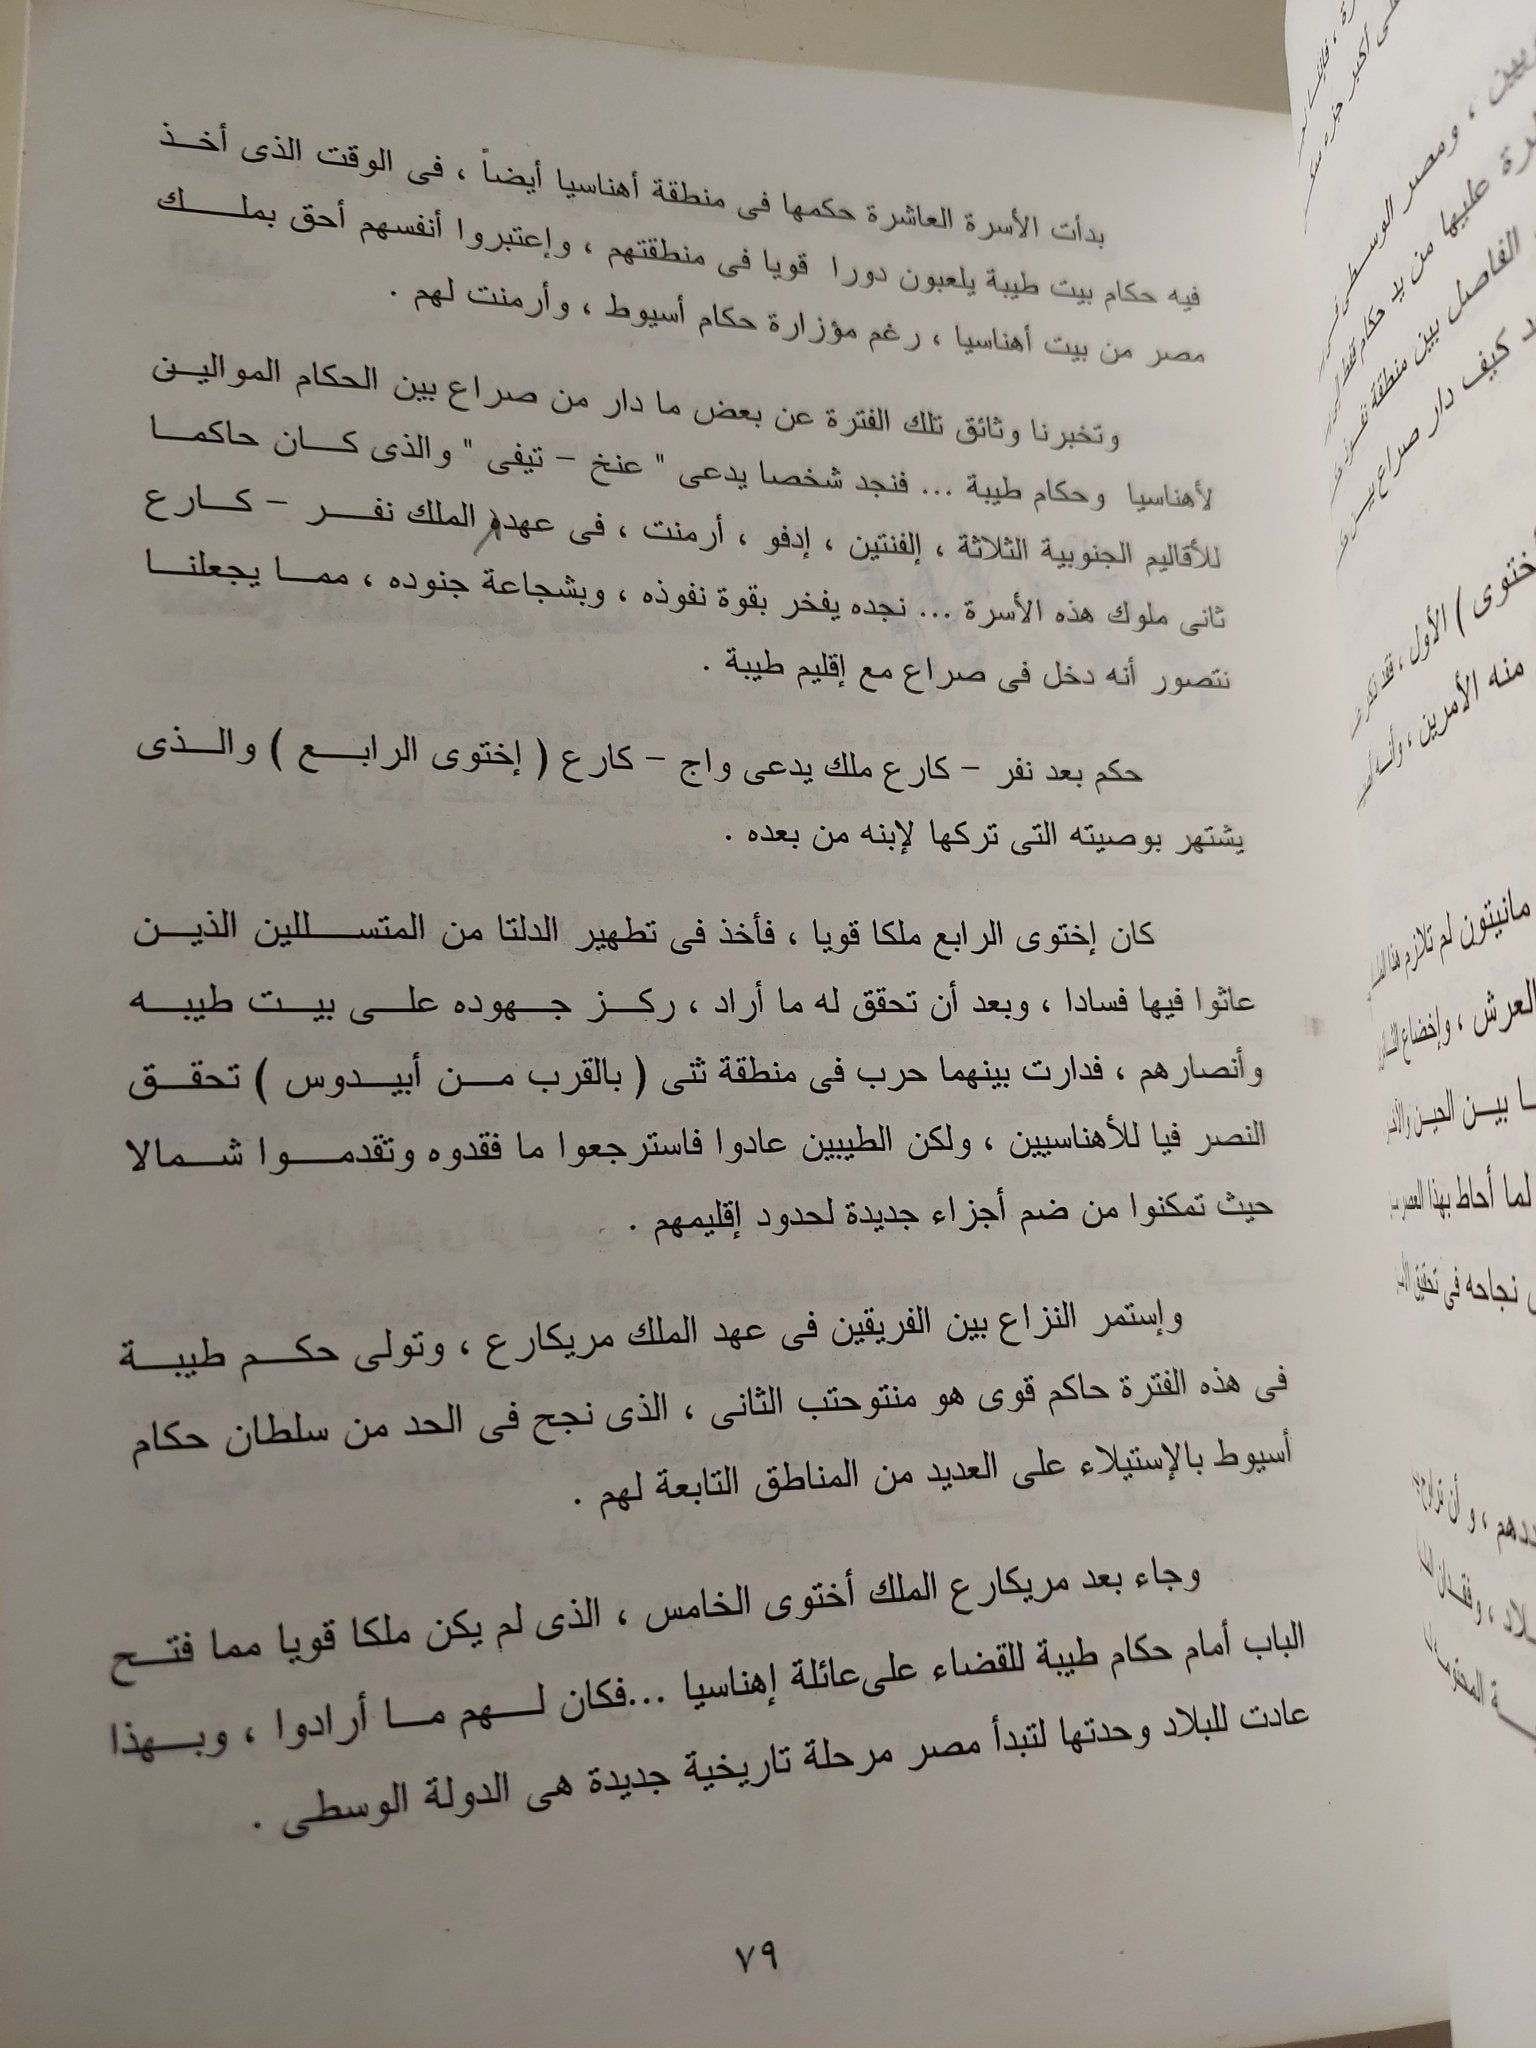 بدأت الأسرة العاشرة حكمها فى منطقة أهناسيا أيضاً ، فى الوقت الذى أخذ
فيه حكام بيت طيبة يلعبون دورا قويا فى منطقتهم ، وإعتبروا أنفسهم أحق بملك
مصر من بيت أهناسيا ، رغم مؤزارة حكام أسيوط ، وأرمنت لهم .
وتخبرنا وثائق تلك الفترة عن بعض ما دار من صراع بين الحكام الموالين
لأهناسيا وحكام طيبة ... فنجد شخصا يدعى " عنخ – تيفى " والذى كان حاكما
للأقاليم الجنوبية الثلاثة ، إلفنتين ، إدفو ، أرمنت ، فى عهد الملك نفر – كارع
ثانى ملوك هذه الأسرة ... نجده يفخر بقوة نفوذه ، وبشجاعة جنوده ، مما يجعلنا
نتصور أنه دخل فى صراع مع إقليم طيبة .
حكم بعد نفر – كارع ملك يدعى واج – كارع ( إختوى الرابع ) والذى
يشتهر بوصيته التى تركها لإبنه من بعده .
كان إختوى الرابع ملكا قويا ، فأخذ فى تطهير الدلتا من المتسللين الذين
عاثوا فيها فسادا ، وبعد أن تحقق له ما أراد ، ركز جهوده على بيت طيبه
وأنصارهم ، فدارت بينهما حرب فى منطقة ثنى ( بالقرب من أبيدوس ) تحقق
النصر فيا للأهناسيين ، ولكن الطيبين عادوا فاسترجعوا ما فقدوه وتقدموا شمالا
حيث تمكنوا من ضم أجزاء جديدة لحدود إقليمهم .
وإستمر النزاع بين الفريقين فى عهد الملك مريكارع ، وتولى حكم طيبة
فى هذه الفترة حاكم قوى هو منتوحتب الثانى ، الذى نجح فى الحد من سلطان حكام
أسيوط بالإستيلاء على العديد من المناطق التابعة لهم .
وجاء بعد مريكارع الملك أختوى الخامس ، الذى لم يكن ملكا قويا مما فتح
الباب أمام حكام طيبة للقضاء على عائلة إهناسيا ...فكان لهم ما أرادوا ، وبهذا
عادت للبلاد وحدتها لتبدأ مصر مرحلة تاريخية جديدة هى الدولة الوسطى .
٧٩
ومصر الوسطى
عليها من يد حكام
الفاصل بين منطقة
كيف دار صراع
إختوى ) الأول ، فقد
منه الأمرين ،
مانيتون لم تلازم هذا
العرش ، وإخضاع
بين الحين
لما أحاط بهذا العصر
نجاحه فى تحقيق